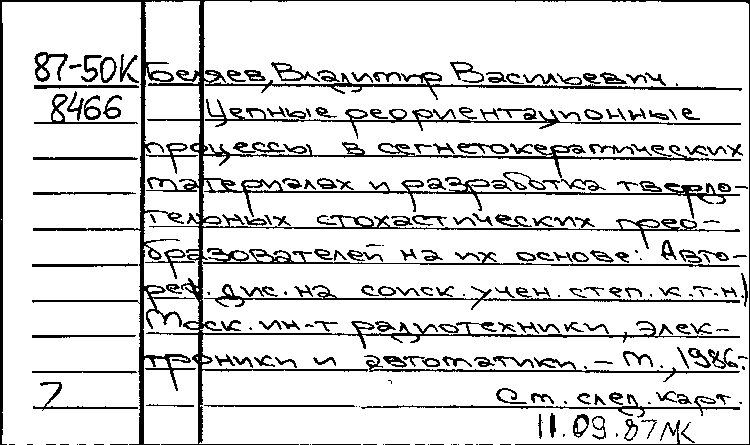 87-50К Беляев, Владимир Васильевич.
8466 Цепные реориентационные
процессы в сегнетокерамических
материалах и разработка твердо-
тельных стохастических прео-
бразователей на их основе: Авто-
реф. дис. на соиск. учен. степ. к.т.н./
Моск. ин-т радиотехники, элек-
троники и автоматики. – М., 1986.-
7 См. след. карт.
11.09.87 МК